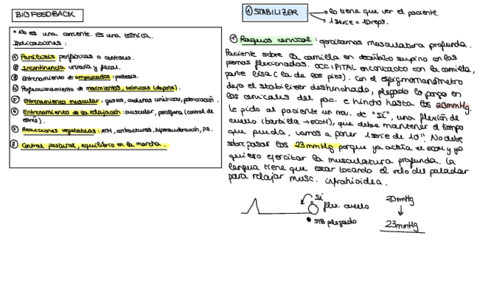 BIOFEEDBACK
* No es una corriente. es una técnica.
Indicaciones:
① Parálisis periféricas o centrales.
② Incontinencia urinaria y fecal.
③ Entrenamiento de amputados: prótesis.
④ Perfeccionamiento de movimientos, técnicas (deporte).
⑤ Entrenamiento muscular:
⑥ Entrenamiento de la relajación: muscular, (control de estrés).
⑦ Reacciones vegetativas:
⑧ Control postural, equilibrio en la marcha.
① STABILIZER
→ lo tiene que ver el paciente
→ 1 serie = 10 reps.
* Raquis cervical: musculatura profunda.
Paciente sobre la camilla en decúbito supino con las
piernas flexionadas. OCCIPITAL en contacto con la camilla,
parte lisa (la de los pies). Con el esfigmomanómetro
dejo el stabilizer deshinchado, plegado lo pongo en
las cervicales del pac. e hincho hasta los 20mmHg.
Le pido al paciente un mov. de "SÍ", una flexión de
cuello (barbilla → ), que debe mantener el tiempo
que pueda, vamos a poner 1 serie de 10". No debe
sobrepasar los 23mmHg porque ya actúa el ECOM y yo
quiero ejercitar la musculatura profunda. La
lengua tiene que estar tocando el velo del paladar
para relajar musc. infrahioidea.
Sí
flex. cuello
STB plegado
20mmHg
↓
23mmHg